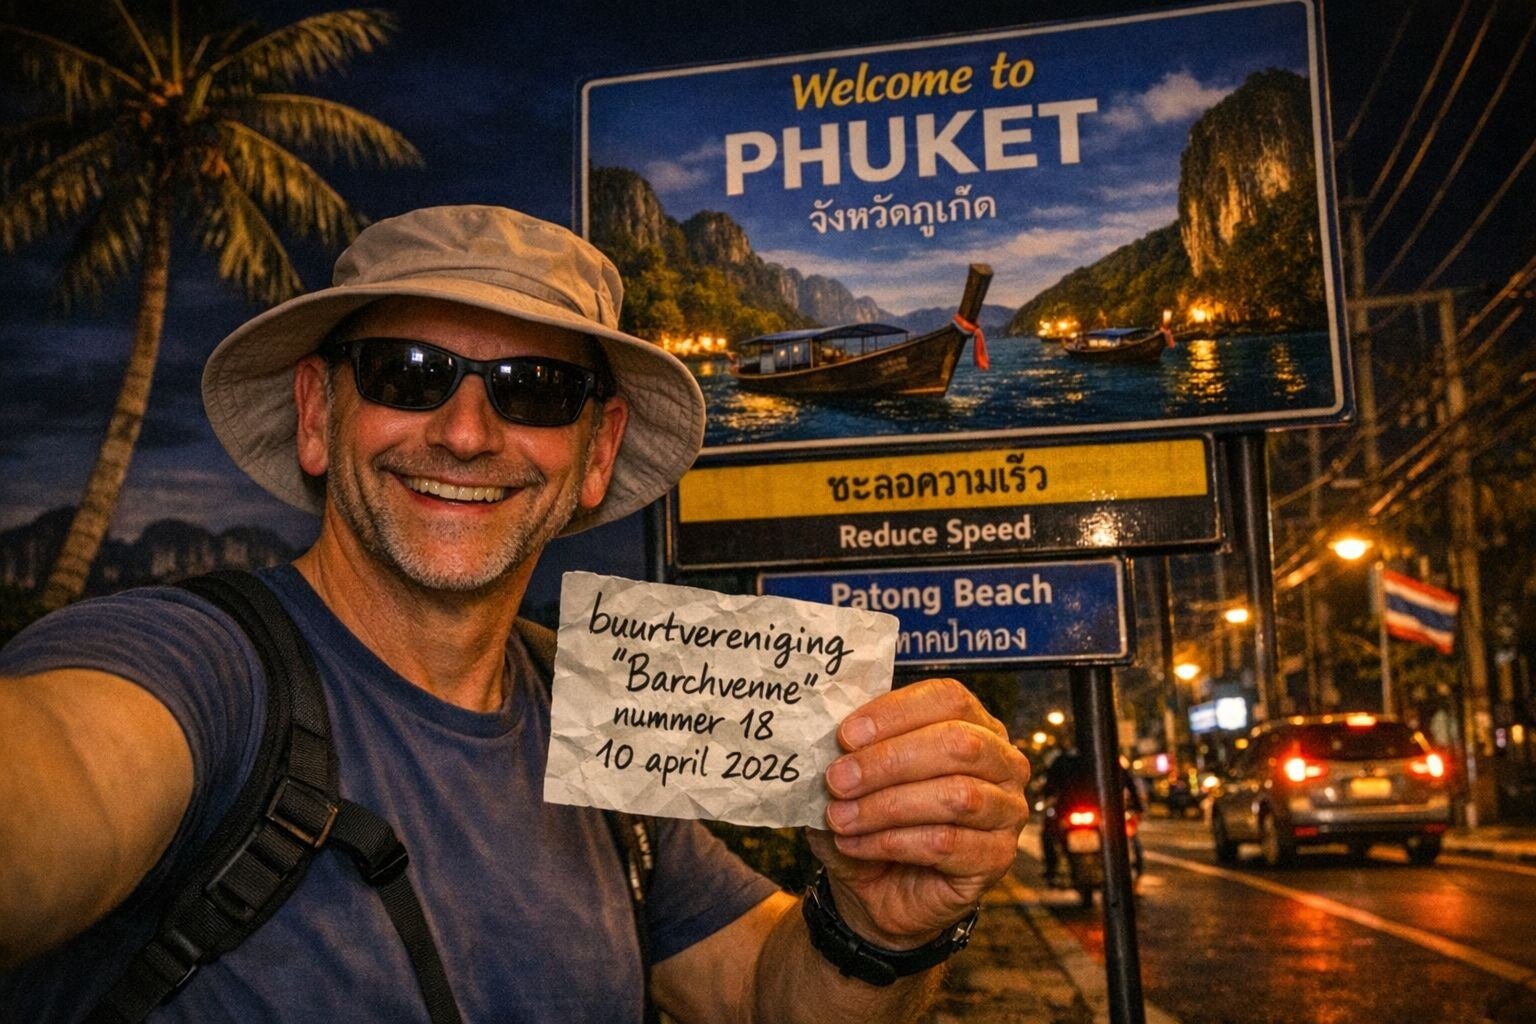 Welcome to
PHUKET
จังหวัดภูเก็ต
ชะลอความเร็ว
Reduce Speed
Patong Beach
หาดป่าตอง
buurtvereniging
"Barchvenne"
nummer 18
10 april 2026